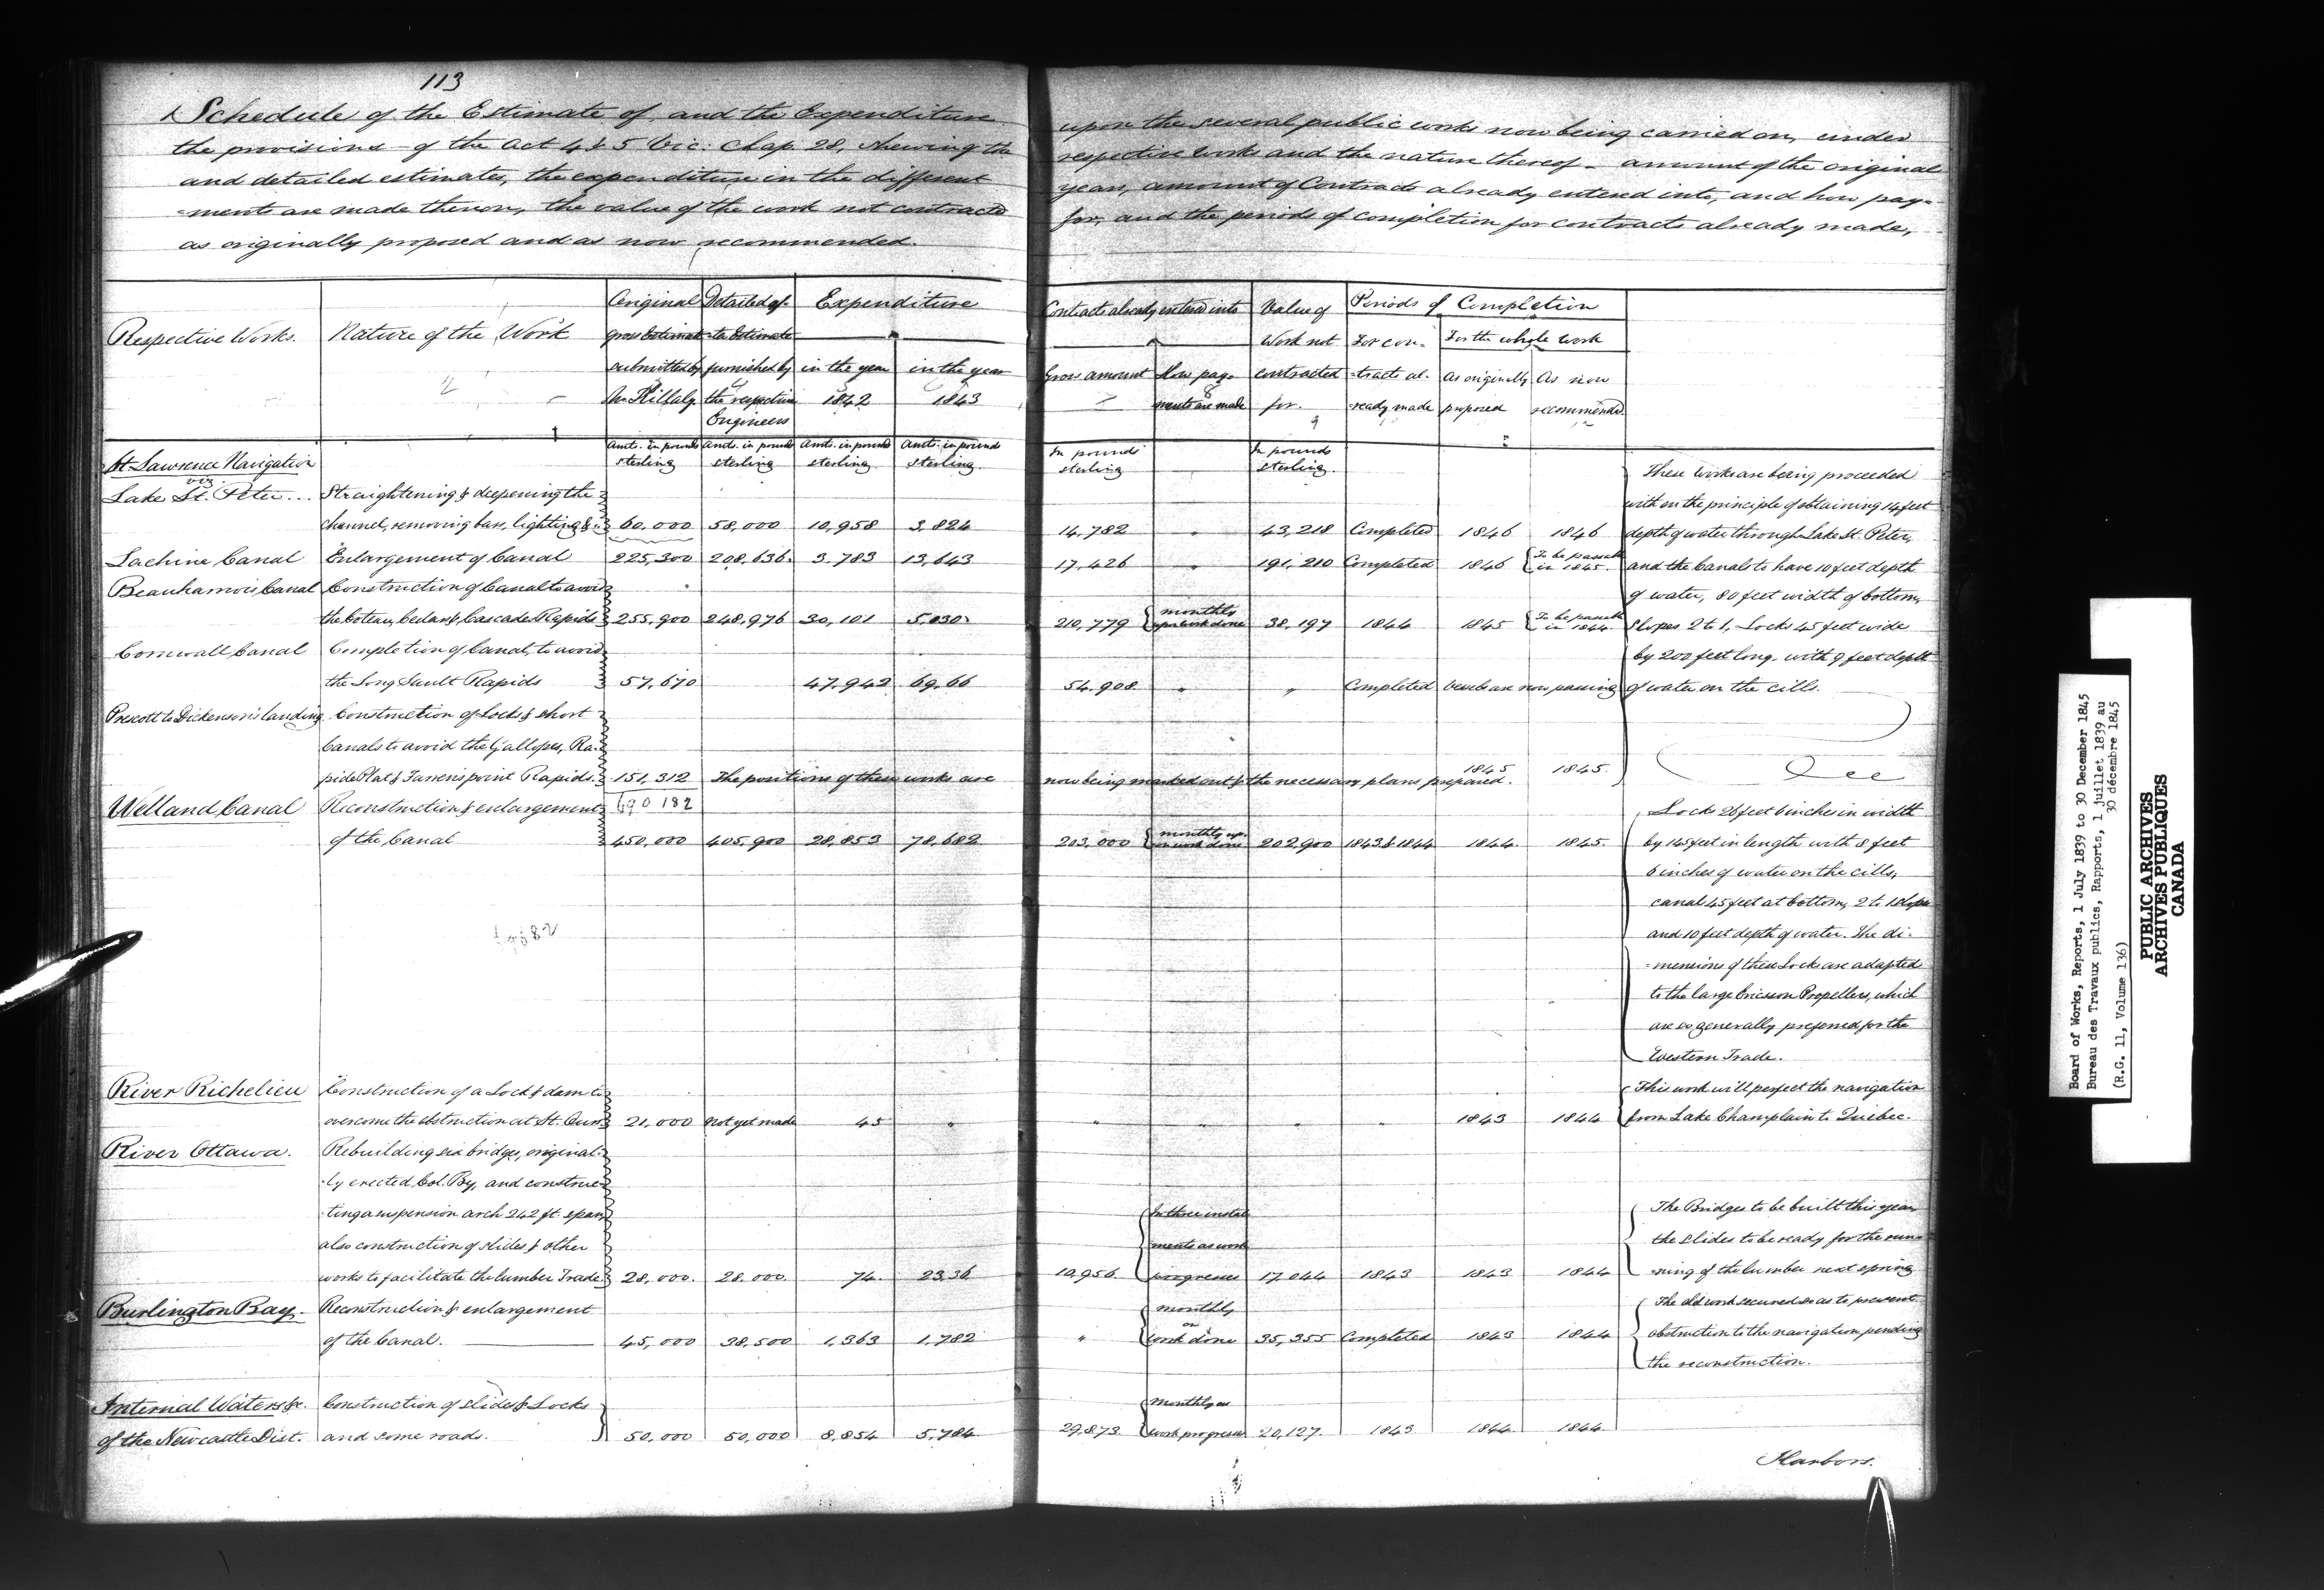 113
A Schedule of the Estimate of, and the Expenditure upon the several public works now being carried on, under
the provisions of the Act 4 & 5 Vic: Chap. 28, shewing the respective works and the nature thereof - amount of the original
and detailed estimates, the expenditure in the different years, amount of Contracts already entered into, and how pay=
=ments are made thereon, the value of the work not contracted for, and the periods of completion for contracts already made,
as originally proposed and as now recommended.
Respective Works. | Nature of the Work | Original gross Estimate submitted by Mr Killaly | Detailed gross Estimate furnished by the respective Engineers | Expenditure in the year 1842 | in the year 1843 | Contracts already entered into Gross amount | How pay- ments are made | Value of Work not contracted for. | Periods of Completion For con- tracts al- ready made | For the whole work As originally proposed | As now recommended
Amts. in pounds sterling | Amts. in pounds sterling | Amts. in pounds sterling | Amts. in pounds sterling. | In pounds sterling | In pounds sterling.
St. Lawrence Navigation
viz
Lake St. Peter... Straightening & deepening the
channel, removing bars, lighting &c. 60,000 58,000 10,958 3,824 14,782 " 43,218 Completed 1846 1846
Lachine Canal Enlargement of Canal 225,300 208,636. 3,783 13,643 17,426 " 191,210 Completed 1846 To be passable in 1845.
Beauharnois Canal Construction of Canal to avoid
the Coteau, Cedars & Cascades Rapids 255,900 248,976 30,101 5,030 210,779 monthly upon work done 38,197 1844 1845 To be passable in 1844.
Cornwall Canal Completion of Canal, to avoid
the Long Sault Rapids 57,670 47,942 69,66 54,908 " " Completed Vessels are now passing
Prescott to Dickenson's landing Construction of Locks & short
Canals to avoid the Gallopes, Ra-
pide Plat & Farren's point Rapids. 151,312 The positions of these works are now being marked out & the necessary plans prepared. 1845 1845.
690 182
These Works are being proceeded
with on the principle of obtaining 14 feet
depth of water through Lake St. Peter,
and the Canals to have 10 feet depth
of water, 80 feet width of bottom,
slopes 2 to 1, Locks 45 feet wide
by 200 feet long. with 9 feet depth
of water on the cills.
Welland Canal Reconstruction & enlargement
of the Canal 450,000 405,900 28,853 78,682 203,000 monthly upon work done 202,900 1843 & 1844 1844. 1845.
Locks 26 feet 6 inches in width
by 145 feet in length with 8 feet
6 inches of water on the cills,
canal 45 feet at bottom, 2 to 1 slopes
and 10 feet depth of water. The di-
-mensions of these Locks are adapted
to the large Ericsson Propellers, which
are so generally preferred for the
Western Trade.
River Richelieu Construction of a Lock & dam to
overcome the obstruction at St. Ours 21,000 Not yet made 45 " " " " " 1843 1844
This work will perfect the navigation
from Lake Champlain to Quebec.
River Ottawa. Rebuilding six bridges, original-
-ly erected Col. By, and construc-
-ting a suspension arch 242 ft. span,
also construction of slides & other
works to facilitate the lumber Trade 28,000. 28,000. 74. 2336 10,956. In three instal ments as work progresses 17,044 1843 1843 1844
The Bridges to be built this year
the slides to be ready for the run-
-ning of the lumber next spring
Burlington Bay. Reconstruction & enlargement
of the Canal. 45,000 38,500 1,363 1,782 " monthly on work done 35,355 Completed 1843 1844
The old work secured so as to prevent
obstruction to the navigation pending
the reconstruction.
Internal Waters &c. Construction of slides & Locks
of the Newcastle Dist. and some roads. 50,000 50,000 8,854 5,784 29,873. Monthly as work progresses 20,127. 1843 1844 1844
Harbors.
Board of Works, Reports, 1 July 1839 to 30 December 1845
Bureau des Travaux publics, Rapports, 1 juillet 1839 au
30 décembre 1845
(R.G. 11, Volume 136)
PUBLIC ARCHIVES
ARCHIVES PUBLIQUES
CANADA